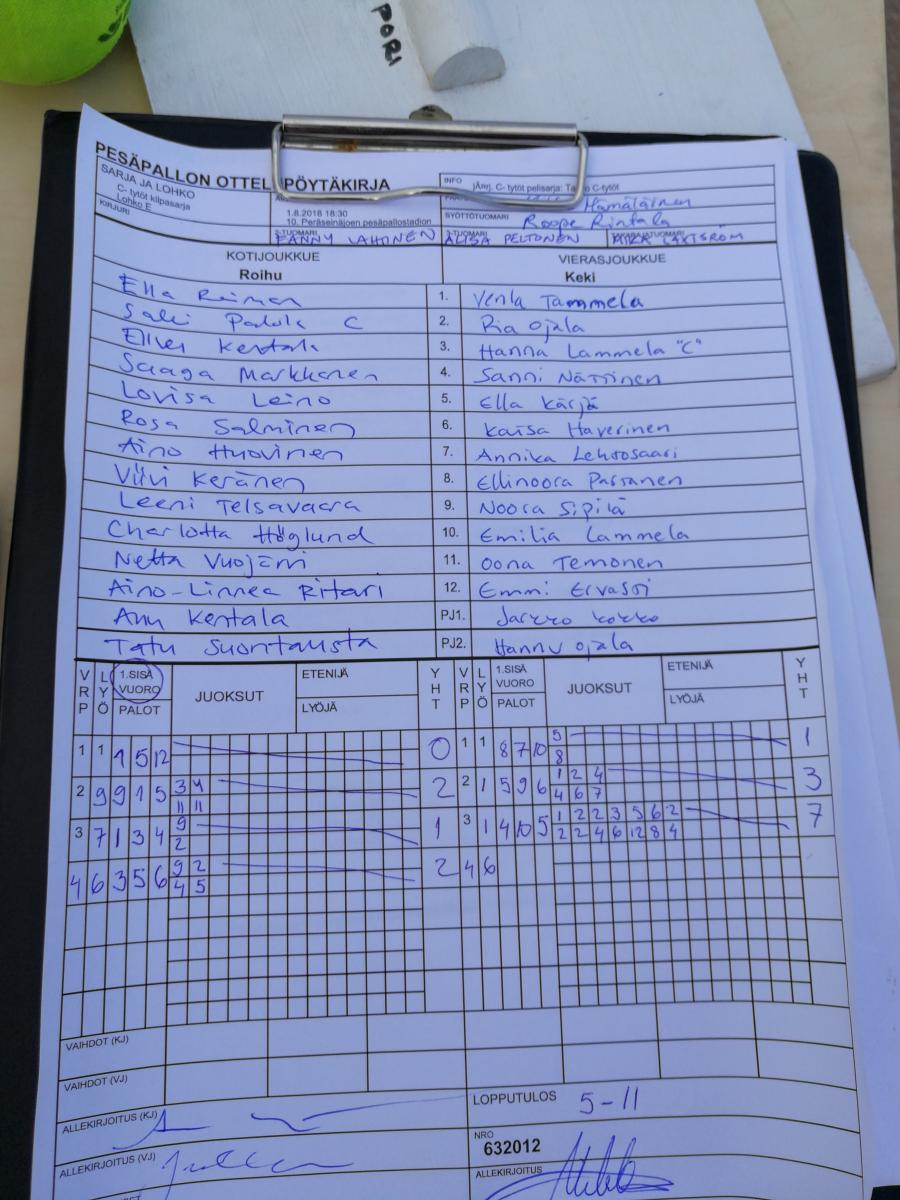 PORI
PESÄPALLON OTTEL PÖYTÄKIRJA
SARJA JA LOHKO
C- tytöt kilpasarja
Lohko E
KIRJURI
1.8.2018 18:30
10. Peräseinäjoen pesäpallostadion
INFO
jÄrrj. C- tytöt pelisarja: C-tytöt
Hämäläinen
SYÖTTÖTUOMARI Roope Rintala
2-TUOMARI FANNY LAHTINEN
3-TUOMARI ALISA PELTONEN
TAKARAJATUOMARI
KOTIJOUKKUE VIERASJOUKKUE
Roihu Keki
Ella Reiman 1. Venla Tammela
Salli C 2. Ria Ojala
Kentala 3. Hanna Lammela "C"
Saaga Markkanen 4. Sanni Närvinen
Lovisa Leino 5. Ella Kärjä
Rosa Salminen 6. Kaisa Haverinen
Aino Huovinen 7. Annika Lehtosaari
Viivi Keränen 8. Ellinoora Passanen
Leeni Telsavaara 9. Noora Sipilä
Charlotta Höglund 10. Emilia Lammela
Netta Vuojärvi 11. Oona Temonen
Aino-Linnea Ritari 12. Emmi Ervasti
Anu Kentala PJ1. Jarkko Kokko
Tatu Suontausta PJ2. Hannu Ojala
VRP LYÖ 1.SISÄ VUORO PALOT JUOKSUT ETENIJÄ LYÖJÄ YHT VRP LYÖ 1.SISÄ VUORO PALOT JUOKSUT ETENIJÄ LYÖJÄ YHT
1 1 1 5 12 0 1 1 8 7 10 5 1
8
2 9 9 1 5 3 4 2 2 1 5 9 6 1 2 4 3
11 11 4 6 7
3 7 1 3 4 9 1 3 1 4 10 5 1 2 2 3 5 6 2 7
2 2 2 4 6 12 8 4
4 6 3 5 6 9 2 2 4 6
4 5
VAIHDOT (KJ)
VAIHDOT (VJ)
ALLEKIRJOITUS (KJ)
LOPPUTULOS 5-11
ALLEKIRJOITUS (VJ)
NRO
632012
ALLEKIRJOITUS